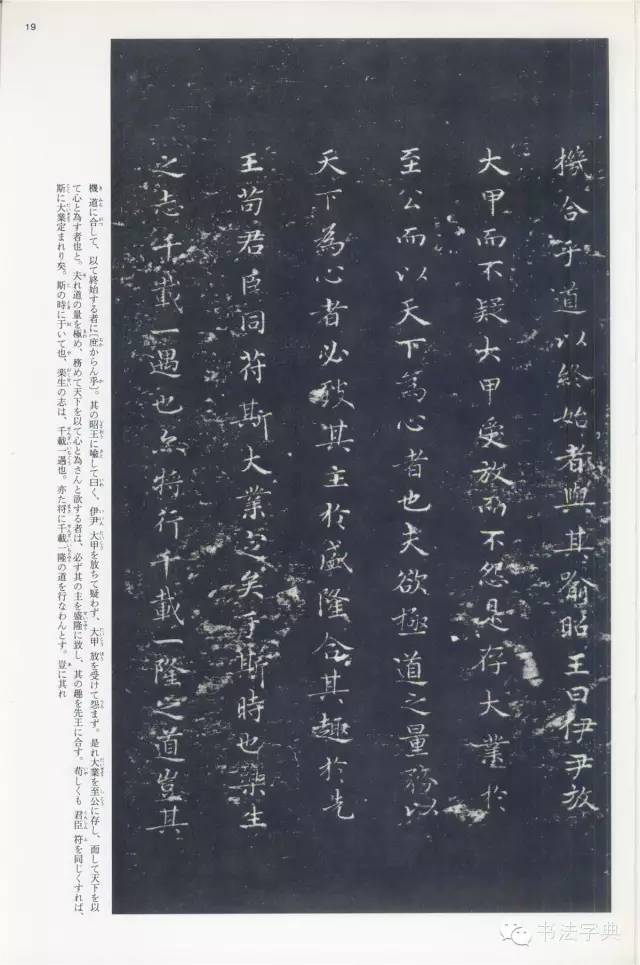 19
機合乎道以終始者與其喻昭王曰伊尹放
大甲而不疑大甲受放而不怨是存大業於
至公而以天下為心者也夫欲極道之量務以
天下為心者必致其主於盛隆合其趣於先
王苟君臣同符斯大業定矣于斯時也樂生
之志千載一遇也亦將行千載一隆之道豈其
機 道に合して、以て終始する者に〔庶からん乎〕。其の昭王に喩して曰く、伊尹 大甲を放ちて疑わず、大甲 放を受けて怨まず。是れ大業を至公に存し、而して天下を以
て心と為す者也と。夫れ道の量を極め、務めて天下を以て心と為さんと欲する者は、必ず其の主を盛隆に致し、其の趣を先王に合す。苟しくも 君臣 符を同じくすれば、
斯に大業定まれり矣。斯の時に于いて也、楽生の志は、千載一遇也。亦た将に千載一隆の道を行なわんとす。豈に其れ
书法字典